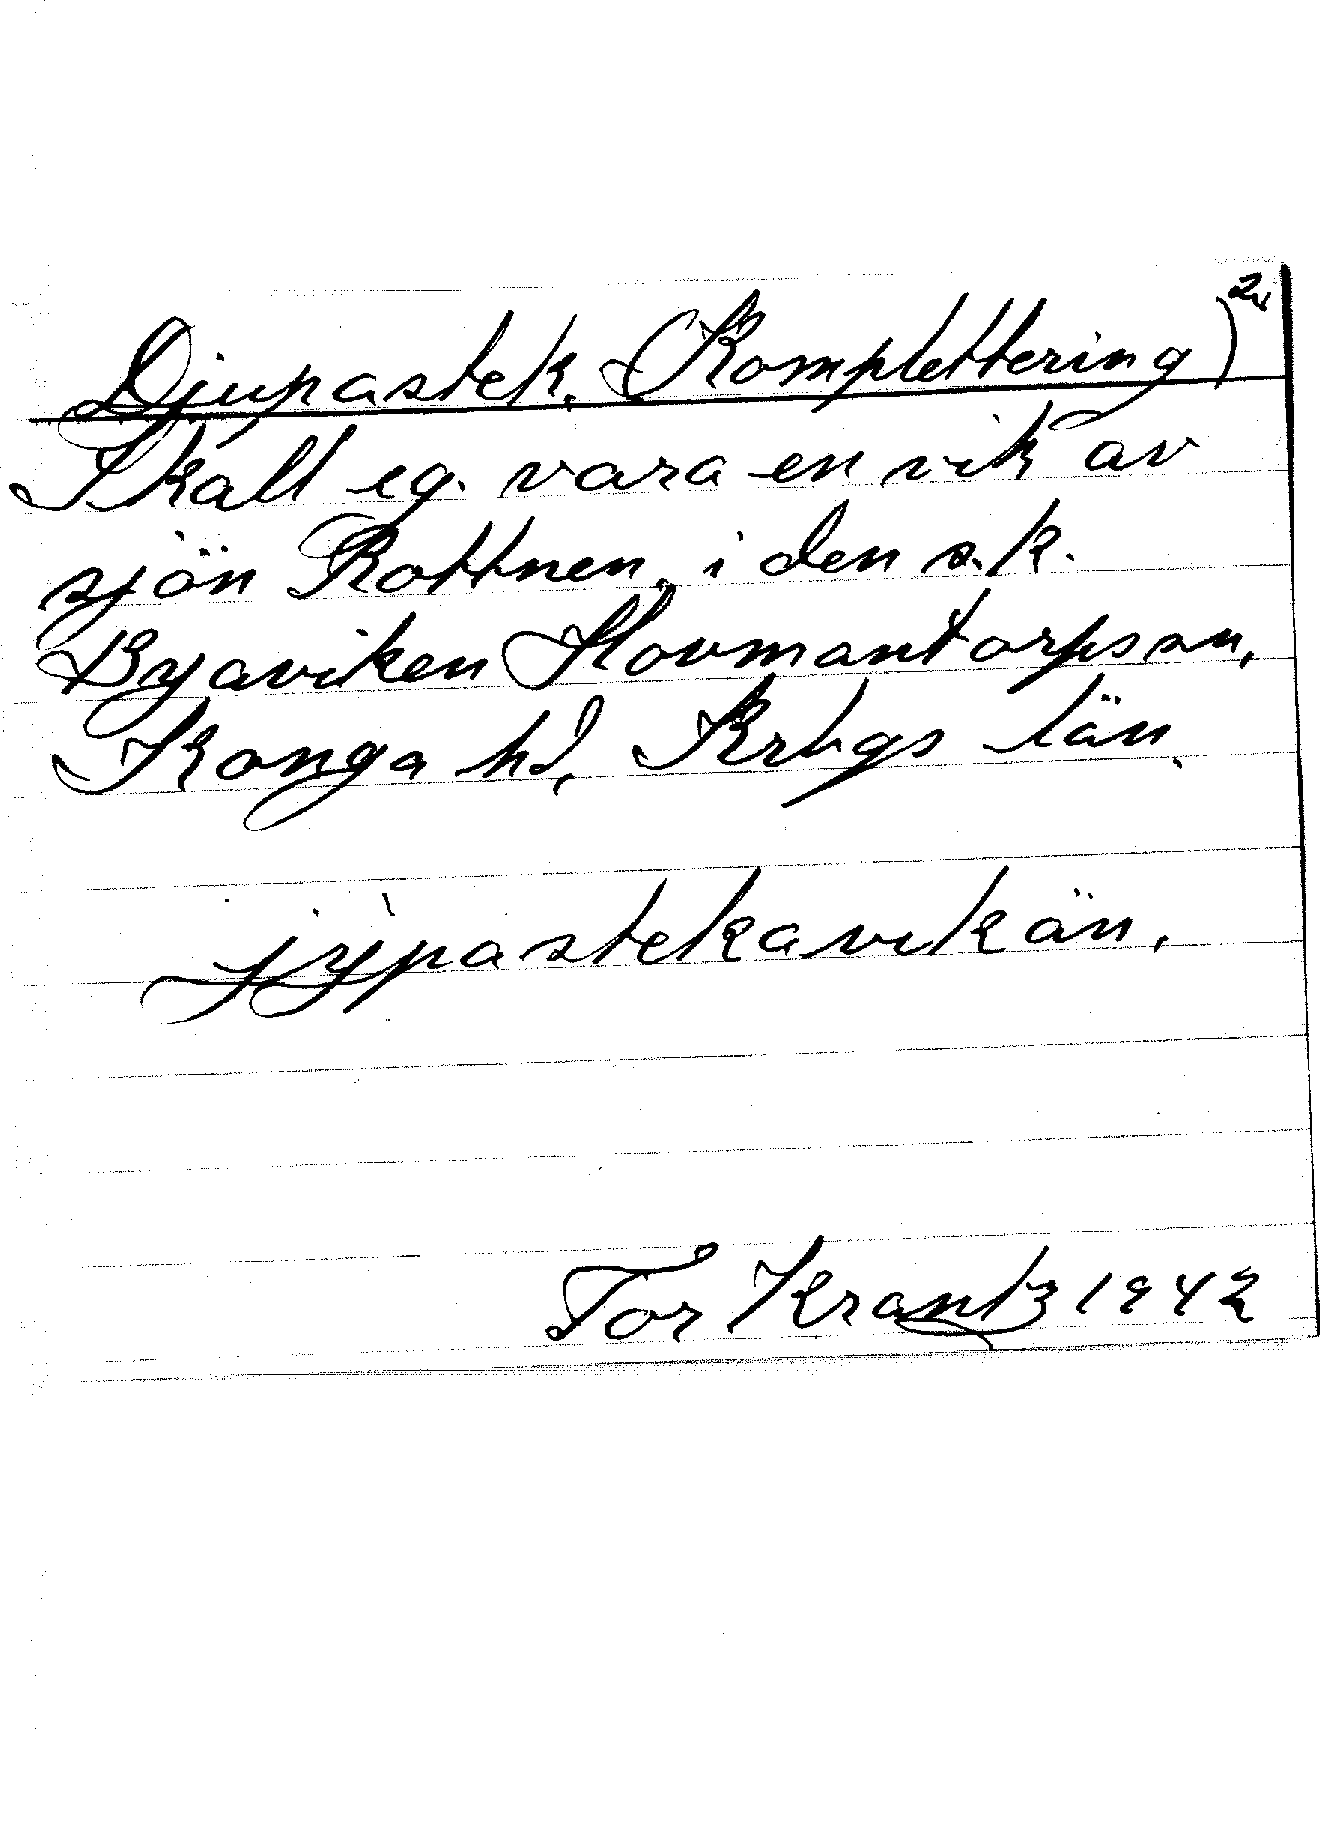 2x
Djupastek. (Komplettering)
Skall eg. vara en vik av
sjön Rottnen, i den s.k.
Byaviken Hovmantorps sn,
Konga hd, Krbgs län.
jýpastekavikän.
Tor Krantz 1942